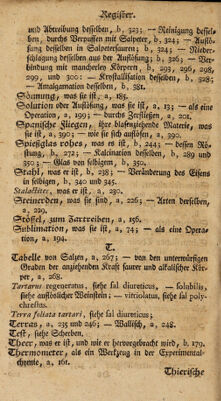 Register.
und Abtreibung desselben, b, 323; — Reinigung dessel-
ben, durchs Verpuffen mit Salpeter, b, 324; — Auflö-
sung desselben in Salpetersauren; b, 324; — Nieder-
schlagung desselben aus der Auflösung; b, 326; — Ver-
mischung mit mancherley Körpern, b, 293, 296, 298,
299, und 300: — Krystallisation desselben, b, 328;
— Amalgamation desselben, b, 381.
Sömung, was sie ist, a, 185.
Solution oder Auflösung, was sie ist, a, 133; — als eine
Operation, a, 199; — durchs Zerfließen, a, 201.
Spanische Fliegen, ihre blasenziehende Materie, was
sie ist, a, 303; — wie sie sich auflösen, a, 390.
Spießglas rohes, was es ist, b, 244; — dessen Rö-
stung, b, 272; — Kalcination desselben, b, 289 und
350; — Glas von selbigem, b, 350.
Stahl, was er ist, b, 238; — Veränderung des Eisens
in selbigen, b, 340 und 345.
Stalactites, was er ist, a, 230.
Steinerden, was sie sind, a, 226; Arten derselben,
a, 229.
Stößel, zum Zartreiben, a, 156.
Sublimation, was sie ist, a, 743; — als eine Opera-
tion, a, 194.
T.
Tabelle von Salzen, a, 267; — von den unterwürtigen
Graden der anziehenden Kraft saurer und alkalischer Kör-
per, a, 268.
Tartarus regeneratus, siehe sal diureticus, — solubilis,
siehe auflöslicher Weinstein; — vitriolatus, siehe sal poly-
chrestus.
Terra foliata tartari, siehe sal diureticus;
Terras, a, 235 und 246; — Wallisch, a, 248.
Test, siehe Scherben.
Theer, was er ist, und wie er hervorgebracht wird, b, 179.
Thermometer, als ein Werkzeug in der Experimental-
chymie, a, 161.
Thierische